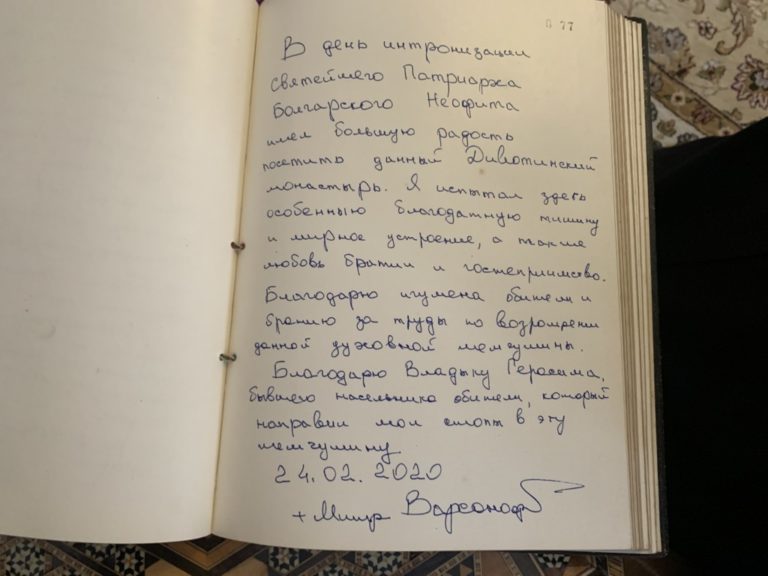 В 77
В день интронизации
Святейшего Патриарха
Болгарского Неофита
имел большую радость
посетить данный Дивотинский
монастырь. Я испытал здесь
особенную благодатную тишину
и мирное устроение, а также
любовь братии и гостеприимство.
Благодарю игумена обители и
братию за труды по возрождении
данной духовной жемчужины.
Благодарю Владыку Герасима,
бывшего насельника обители, который
направил мои стопы в эту
жемчужину
24.02.2020
+ Митр Варсоноф